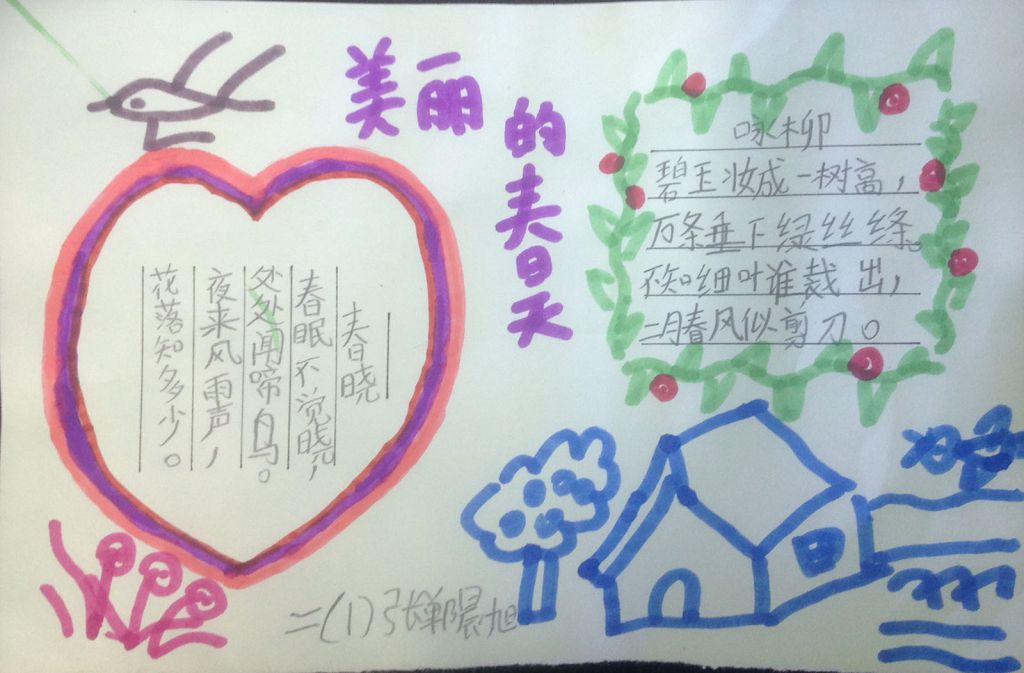 美丽的春天
春晓
春眠不觉晓，
处处闻啼鸟。
夜来风雨声，
花落知多少。
咏柳
碧玉妆成一树高，
万条垂下绿丝绦。
不知细叶谁裁出，
二月春风似剪刀。
二(1)张晨旭